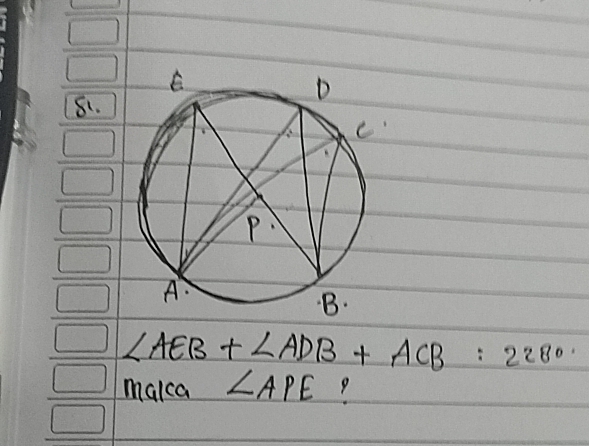 E D
81. C.
P.
A. B.
∠AEB + ∠ADB + ACB : 228°.
maka ∠APE ?